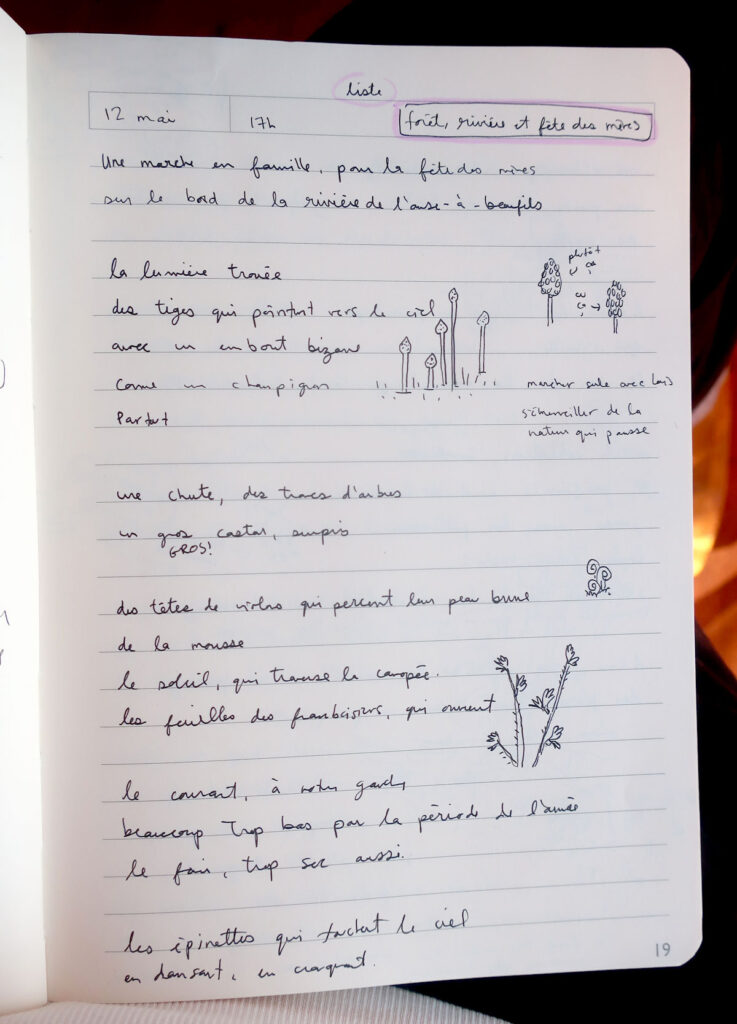 liste
12 mai
17h
forêt, rivière et fête des mères
Une marche en famille, pour la fête des mères
sur le bord de la rivière de l'anse-à-beaufils
la lumière trouée
des tiges qui pointent vers le ciel
avec un embout bizarre
comme un champignon
Partout
plutôt
ça
?
ou
ça →
?
marcher seule avec
s'émerveiller de la
nature qui pousse
une chute, des traces d'arbres
un gros castor, surpris
GROS!
des têtes de violons qui percent leur peau brune
de la mousse
le soleil, qui traverse la canopée.
les feuilles des framboisiers, qui ouvrent
le courant, à notre gauche
beaucoup trop bas par la période de l'année
le foin, trop sec aussi.
les épinettes qui touchent le ciel
en dansant, en craquant.
19